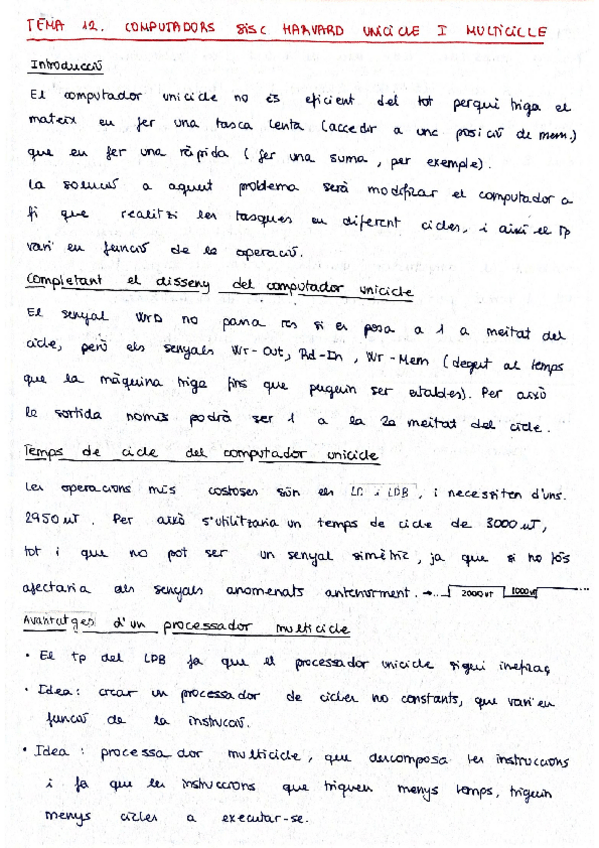 TEMA 12. COMPUTADORS SISC HARVARD UNICICLE I MULTICICLE
Introducció
El computador unicicle no és eficient del tot perquè triga el
mateix en fer una tasca lenta (accedir a una posició de mem.)
que en fer una ràpida (fer una suma, per exemple).
La solució a aquest problema serà modificar el computador a
fi que realitzi les tasques en diferent cicles, i així el Tp
vari en funció de la operació.
Completant el disseny del computador unicicle
El senyal WrD no passa res si es posa a 1 a meitat del
cicle, però els senyals Wr-Out, Rd-In, Wr-Mem (degut al temps
que la màquina triga fins que puguin ser estables). Per això
la sortida només podrà ser 1 a la 2a meitat del cicle.
Temps de cicle del computador unicicle
Les operacions més costoses són els LD i LDB, i necessiten d'uns.
2950 uT. Per això s'utilitzaria un temps de cicle de 3000 uT,
tot i que no pot ser un senyal simètric, ja que si ho fós
afectaria als senyals anomenats anteriorment. →.. 2000 uT 1000 uT
Avantatges d'un processador multicicle
• El tp del LDB fa que el processador unicicle sigui ineficaç
• Idea: crear un processador de cicles no constants, que varien
funció de la instrucció.
• Idea: processador multicicle, que descomposa les instruccions
i fa que les instruccions que triguen menys temps, triguin
menys cicles a executar-se.